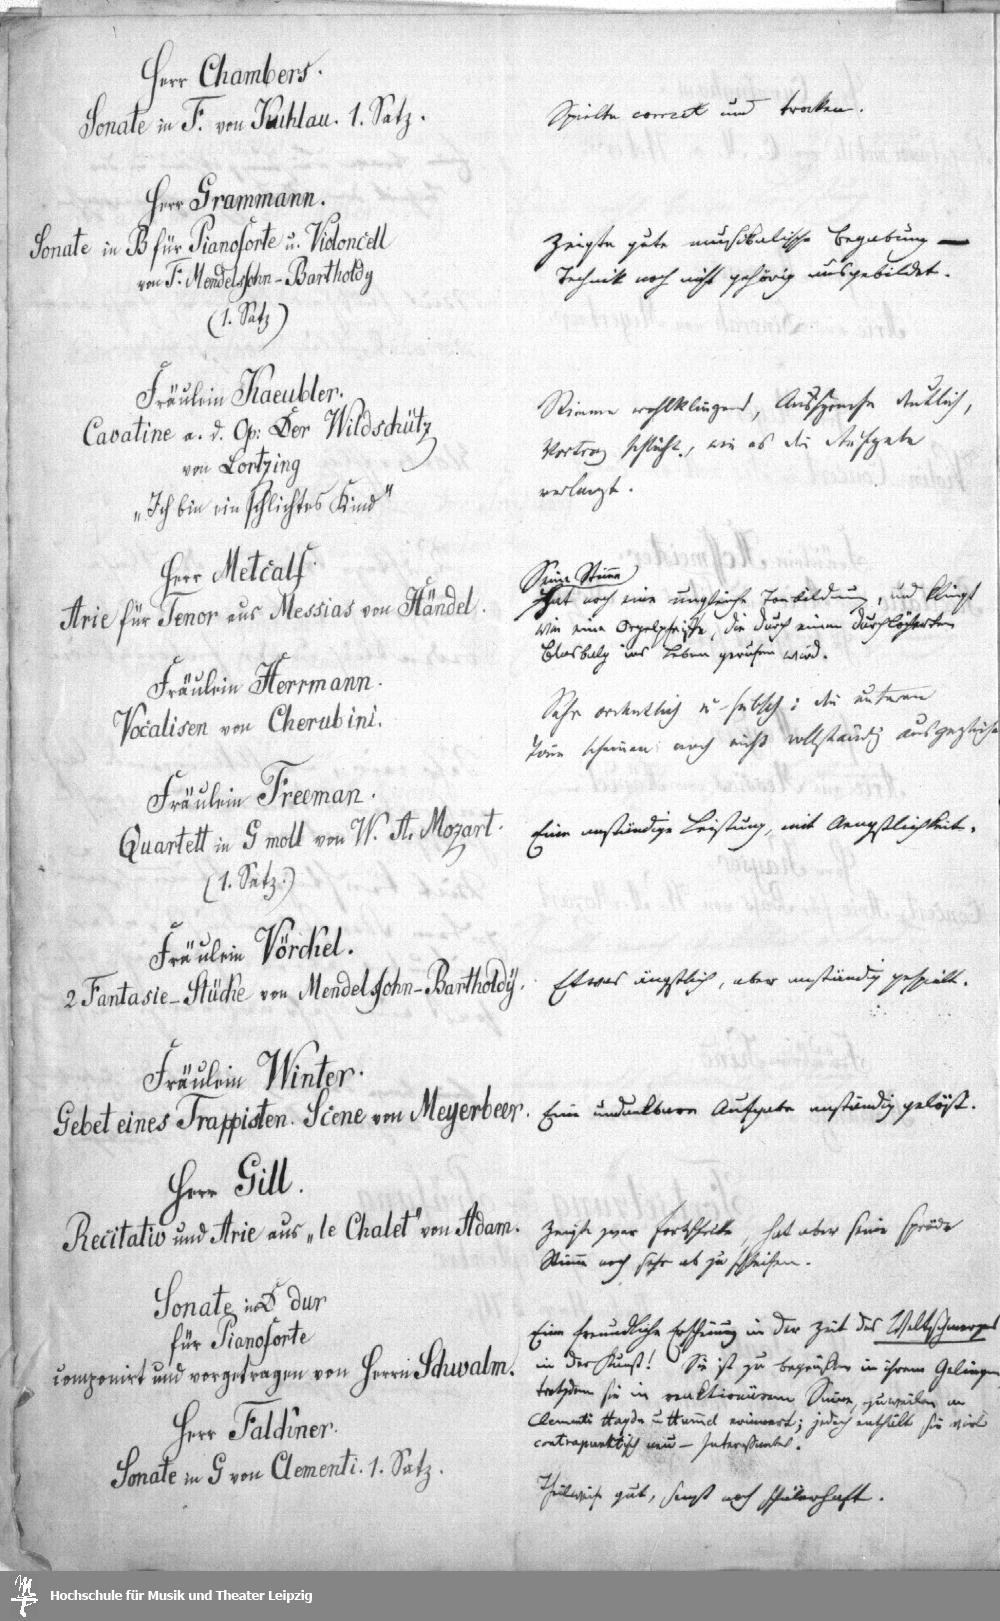 Herr Chambers.
Sonate in F. von Kuhlau. 1. Satz.
Spielte correct und trocken.
Herr Grammann.
Sonate in B für Pianoforte u. Violoncell
von F. Mendelssohn-Bartholdy
(1. Satz)
Zeigte gute musikalische Begabung —
Technik noch nicht gehörig ausgebildet.
Fräulein Kaeubler.
Cavatine a. d. Op: Der Wildschütz
von Lortzing
„Ich bin ein schlichtes Kind"
Stimme wohlklingend, Aussprache deutlich,
Vortrag schlicht, wie es die Aufgabe
verlangt.
Herr Metcalf.
Arie für Tenor aus Messias von Händel.
Seine Stimme
hat noch eine ungleiche Tonbildung, und klingt
wie eine Orgelpfeife, die durch einen durchlöcherten
Blasbalg ins Leben gerufen wird.
Fräulein Herrmann.
Vocalisen von Cherubini.
Sehr ordentlich u. hübsch; die unteren
Töne scheinen noch nicht vollständig ausgeglichen
Fräulein Freeman.
Quartett in G moll von W. A. Mozart.
(1. Satz.)
Eine anständige Leistung, mit Aengstlichkeit.
Fräulein Vörckel.
2 Fantasie-Stücke von Mendelssohn-Bartholdy.
Etwas ängstlich, aber anständig gespielt.
Fräulein Winter.
Gebet eines Trappisten. Scene von Meyerbeer.
Eine undankbare Aufgabe anständig gelöst.
Herr Gill.
Recitativ und Arie aus „le Chalet" von Adam.
Zeigte zwar Fortschritte, hat aber seine spröde
Stimme noch sehr ab zu schleifen.
Sonate in D dur
für Pianoforte
componirt und vorgetragen von Herrn Schwalm.
Eine freundliche Erscheinung in der Zeit des Weltschmerzes
in der Kunst! Sie ist zu begrüßen in ihrem Gelingen
trotzdem sie in reaktionärem Sinne, zuweilen an
Clementi Haydn u. erinnert; jedoch enthält sie viel
contrapunktisch neu - Interessantes.
Herr Faldiner.
Sonate in G von Clementi. 1. Satz.
Theilweise gut, sonst noch schülerhaft.
Hochschule für Musik und Theater Leipzig